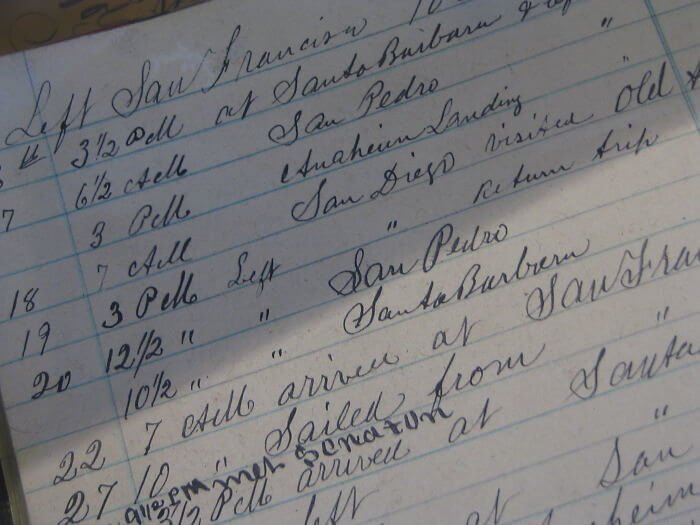 Left San Francisco 10
th 3½ PM at Santa Barbara &
7 6½ AM San Pedro "
3 PM Anaheim Landing "
7 AM San Diego visited Old
18 3 PM Left " return trip
19 12½ " " San Pedro
20 10½ " " Santa Barbara
22 7 AM arrived at San Fran
27 10 " Sailed from "
9½ PM met Senator
3½ PM arrived at Santa
left "
San